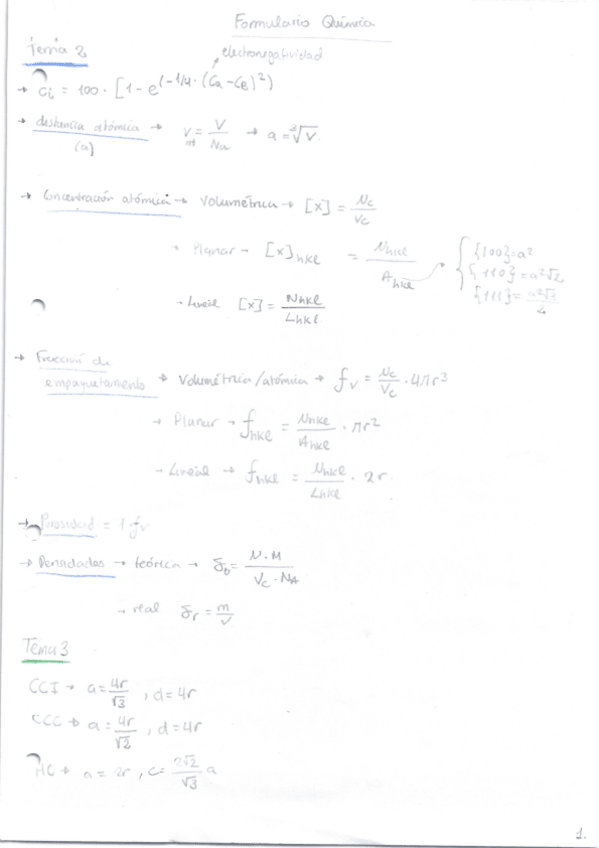 Formulario Química
Tema 2
electronegatividad
→ Ci = 100 · [1 - e^(-1/4 · (Ca - CB)²)]
→ distancia atómica → Vat = V/Na → a = ∛V
(a)
→ Concentración atómica → Volumétrica → [x] = Nc/Vc
→ Planar → [x]hkl = Nhkl/Ahkl → { {100} = a²
{110} = a²√2
{111} = a²√3/2
→ Lineal [x] = Nhkl/Lhkl
→ Fracción de
empaquetamiento → Volumétrica/atómica → fv = Nc/Vc · 4πr³
→ Planar → fhkl = Nhkl/Ahkl · πr²
→ Lineal → fhkl = Nhkl/Lhkl · 2r
→ Porosidad = 1 - fv
→ Densidades → teórica → δt = N·M/Vc·NA
→ real δr = m/v
Tema 3
CCI → a = 4r/√3 , d = 4r
CCC → a = 4r/√2 , d = 4r
HC → a = 2r , c = 2√2/√3 a
1.